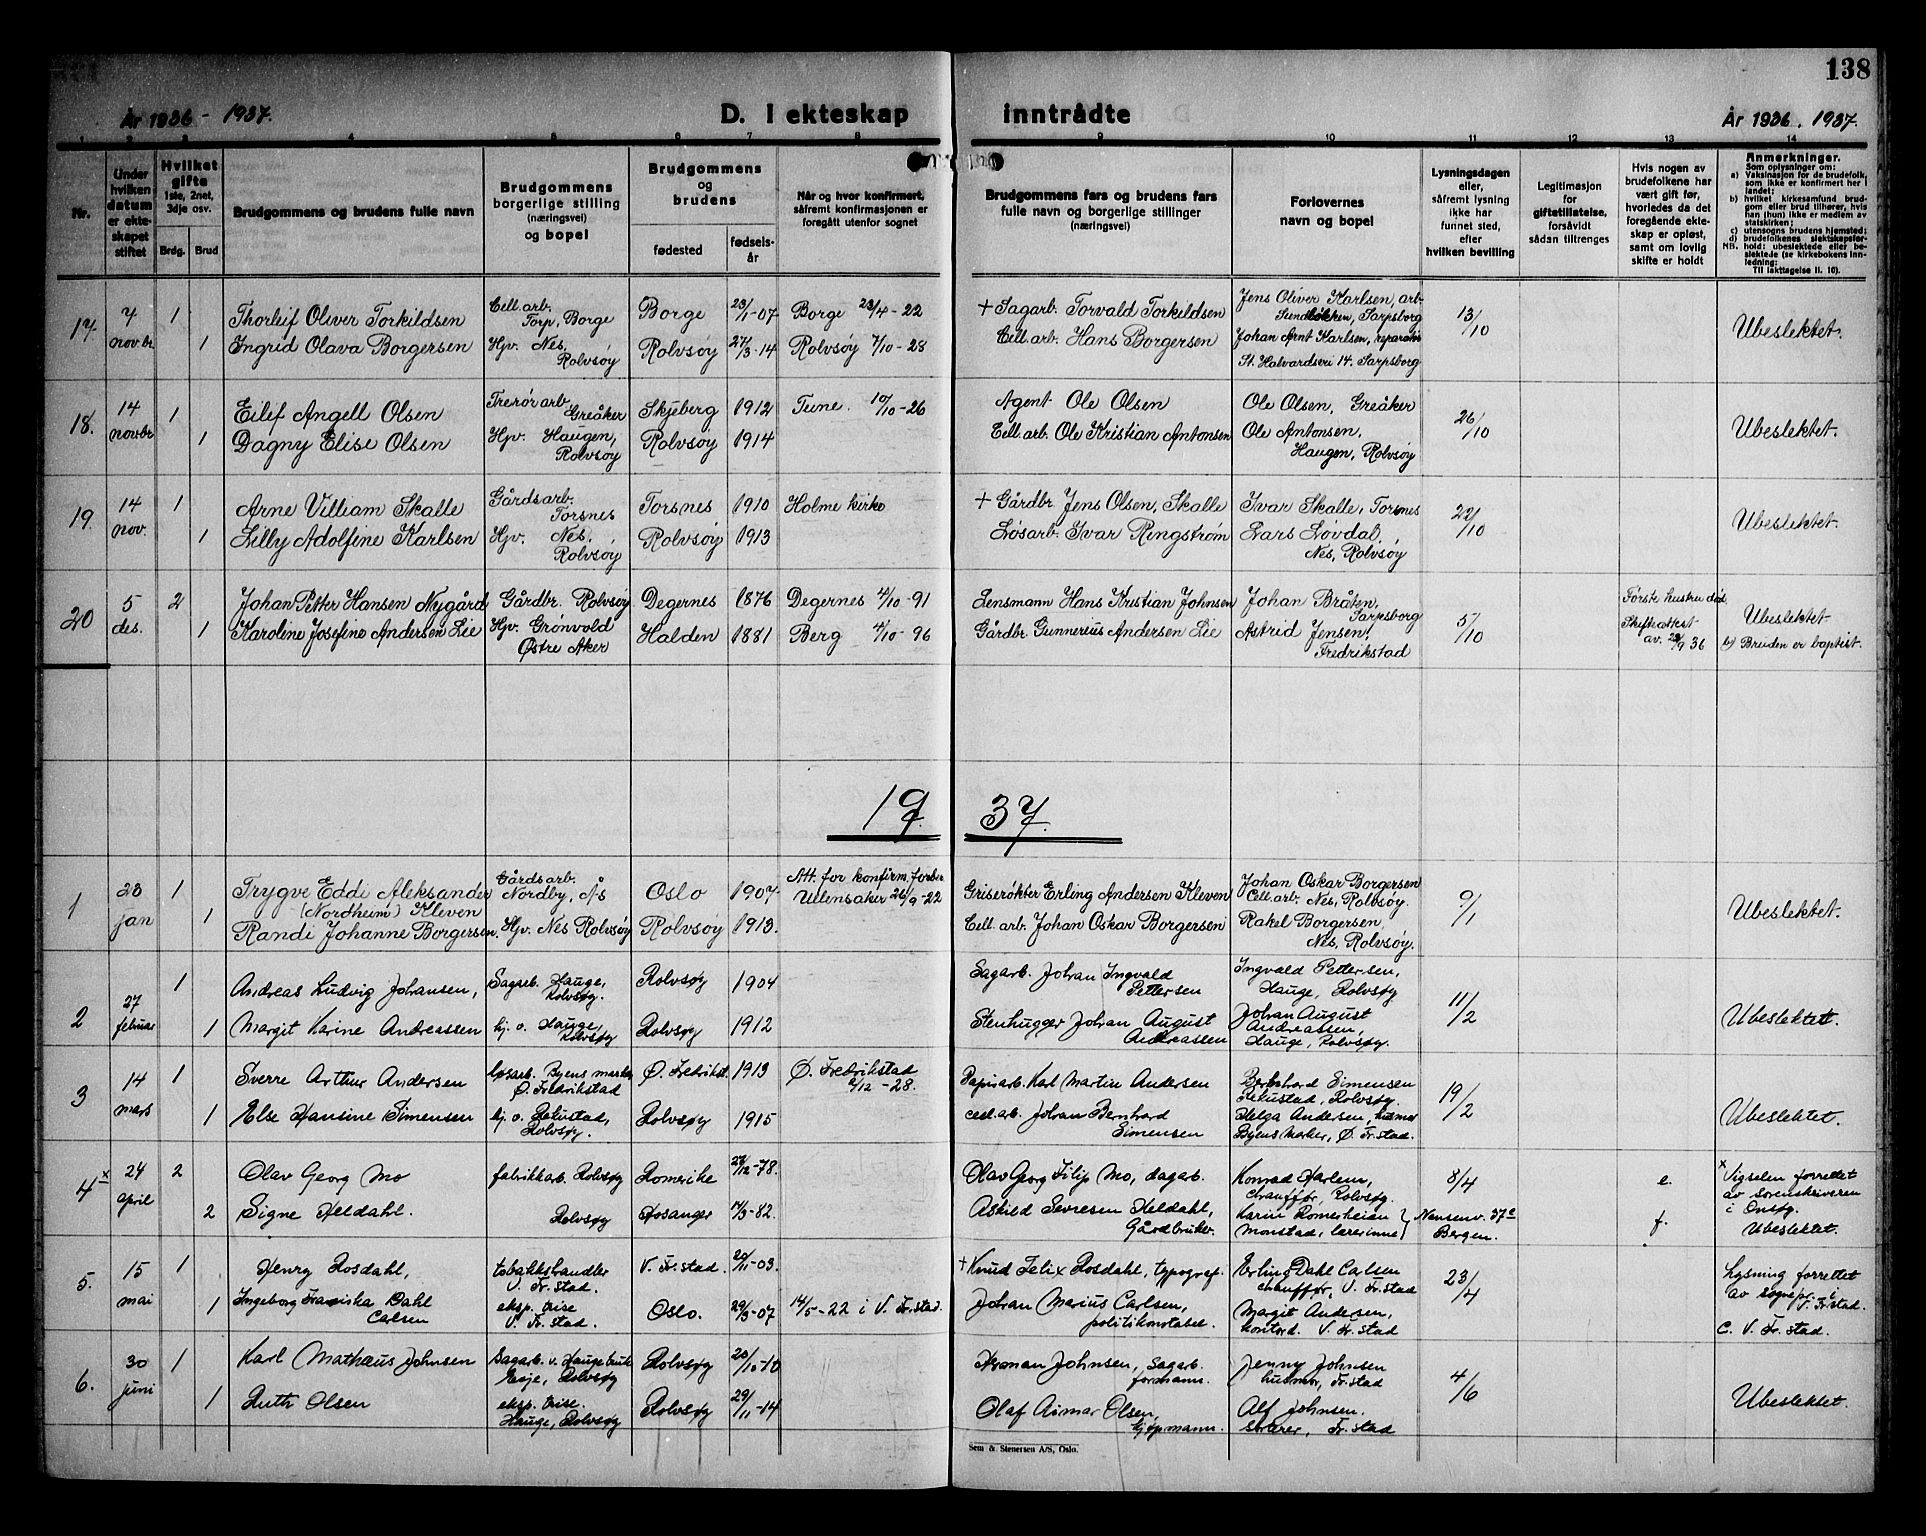 138
År 1936 - 1937.
D. I ekteskap inntrådte
År 1936. 1937.
1 2 3 4 5 6 7 8 9 10 11 12 13 14
Nr.
Under hvilken datum er ekteskapet stiftet
Hvilket gifte 1ste, 2net, 3dje osv.
Brdg. Brud
Brudgommens og brudens fulle navn
Brudgommens borgerlige stilling (næringsvei) og bopel
Brudgommens og brudens
fødested
fødselsår
Når og hvor konfirmert, såfremt konfirmasjonen er foregått utenfor sognet
Brudgommens fars og brudens fars fulle navn og borgerlige stillinger (næringsvei)
Forlovernes navn og bopel
Lysningsdagen eller, såfremt lysning ikke har funnet sted, efter hvilken bevilling
Legitimasjon for giftetillatelse, forsåvidt sådan tiltrenges
Hvis nogen av brudefolkene har vært gift før, hvorledes da det foregående ekteskap er opløst, samt om lovlig skifte er holdt
Anmerkninger.
Som oplysninger om:
a) Vaksinasjon for de brudefolk, som ikke er konfirmert her i landet;
b) hvilket kirkesamfund brudgom eller brud tilhører, hvis han (hun) ikke er medlem av statskirken;
c) utensogns brudens hjemsted;
d) brudefolkenes slektskapsforhold: ubeslektede eller beslektede (se kirkebokens innledning:
NB.
Til iakttagelse II. 10).
17 7 novbr. 1 Thorleif Oliver Torkildsen Cell.arb. Torp, Borge Borge 23/1-07 Borge 23/4-22 + Sagarb. Torvald Torkildsen Jens Oliver Karlsen, arb. Sundløkken, Sarpsborg 13/10 Ubeslektet.
1 Ingrid Olava Borgersen Hjv. Nes, Rolvsøy Rolvsøy 27/3-14 Rolvsøy 7/10-28 Cell.arb. Hans Borgersen Johan Arnt Karlsen, reparatør St. Halvardsvei 14. Sarpsborg
18. 14 novbr 1 Eilif Angell Olsen Trerør arb. Greåker Skjeberg 1912 Tune. 10/10-26 Agent Ole Olsen Ole Olsen, Greåker 26/10 Ubeslektet.
1 Dagny Elise Olsen Hjv. Haugen, Rolvsøy Rolvsøy 1914 Cell.arb. Ole Kristian Antonsen Ole Antonsen, Haugen, Rolvsøy
19. 14 nov. 1 Arne Villiam Skalle Gårdsarb. Torsnes Torsnes 1910 Holme kirke + Gårdbr. Jens Olsen, Skalle Ivar Skalle, Torsnes 22/10 Ubeslektet.
1 Lilly Adolfine Karlsen Hjv. Nes, Rolvsøy Rolvsøy 1913 Løsarb. Ivar Ringstrøm Lars Løvdal, Nes, Rolvsøy
20 5 des. 2 Johan Petter Hansen Nygård Gårdbr. Rolvsøy Degernes 1876 Degernes 4/10-91 Lensmann Hans Kristian Johnsen Johan Bråten, Sarpsborg 5/10 Første hustru død. Skifteattest av 29/9 36 Ubeslektet
1 Karoline Josefine Andersen Lie Hjv. Grønvold Østre Aker Halden 1881 Berg 4/10-96 Gårdbr. Gunnerius Andersen Lie Astrid Jensen, Fredrikstad b) Bruden er baptist.
19 37.
1 23 jan 1 Trygve Eddi Aleksander (Nordheim) Kleven Gårdsarb. Nordby, Ås Oslo 1907 Att. for konfirm.forber. Ullensaker 26/9-22 Griserøkter Erling Andersen Kleven Johan Oskar Borgersen Cell.arb. Nes, Rolvsøy. 9/1 Ubeslektet.
1 Randi Johanne Borgersen. Hjv. Nes Rolvsøy Rolvsøy 1913. Cell.arb. Johan Oskar Borgersen Rakel Borgersen, Nes, Rolvsøy.
2 27 februar 1 Andreas Ludvig Johansen, Sagarb. Hauge, Rolvsøy. Rolvsøy 1904 Sagarb. Johan Ingvald Pettersen Ingvald Pettersen, Hauge, Rolvsøy 11/2 Ubeslektet.
1 Margit Karine Andreassen hj. o. Hauge, Rolvsøy Rolvsøy 1912 Stenhugger Johan August Andreassen Johan August Andreassen, Hauge, Rolvsøy.
3 14 mars 1 Sverre Arthur Andersen Løsarb. Byens marker Ø. Fredrikstad Ø. Fredrikst. 1913 Ø. Fredrikstad 2/12-28. Papirarb. Karl Martin Andersen Bernhard Simensen Rolvsøy. 19/2 Ubeslektet.
1 Else Hansine Simensen hj. o. Rolvsøy. Rolvsøy 1915 cell.arb. Johan Bernhard Simensen Helga Andersen, husmor Byens Marker, Ø. Fr.stad.
4 x 24 april 2 Olav Georg Mo fabrikkarb. Rolvsøy Romerike 27/12-78. Olav Georg Filip Mo, dagarb. Konrad Harlem, chauffør, Rolvsøy. 8/4 e. x Vigselen forrettet av sorenskriveren i Onsøy.
2 Signe Heldahl. Rolvsøy Hosanger 17/3-82. Askild Sevresen Heldahl, Gårdbruker. Karin Romerheim Monstad, lærerinne} Nansenv. 37c Bergen. f. Ubeslektet.
5. 15 mai 1 Henry Rosdahl, tobakkshandler V. Fr.stad. V. Fr.stad. 20/11-03. + Knud Felix Rosdahl, typograf. Erling Dahl Carlsen chauffør, V. Fr.stad 23/4 Lysning forrettet av sognepr. i V. Fr.stad.
1 Ingeborg Franciska Dahl Carlsen eksp. trise V. Fr.stad. Oslo. 29/3-07 14/5-22 i V. Fr.stad. Johan Marius Carlsen, politikonstabel. Margit Andersen, kontord. V. Fr.stad c. V. Fr.stad.
6. 30 juni 1 Karl Mathæus Johnsen Sagarb. v. Hauge bruk Rolvsøy Rolvsøy 20/10-10 Herman Johnsen, sagarb. formann. Jenny Johnsen husmor, Fr.stad 4/6 Ubeslektet.
1 Ruth Olsen eksp. trise. Hauge, Rolvsøy Rolvsøy 29/11-14 Olaf Aimar Olsen, kjøpmann. Alf Johnsen. Fr.stad
Sem & Stenersen A/S, Oslo.